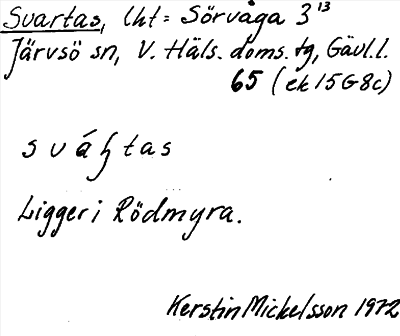 Svartas, lht = Sörvåga 3¹³
Järvsö sn, V. Häls. doms. tg, Gävl.l.
65 (ek 15G8c)
s v á ɧ t a s
Ligger i Rödmyra.
Kerstin Mickelsson 1972